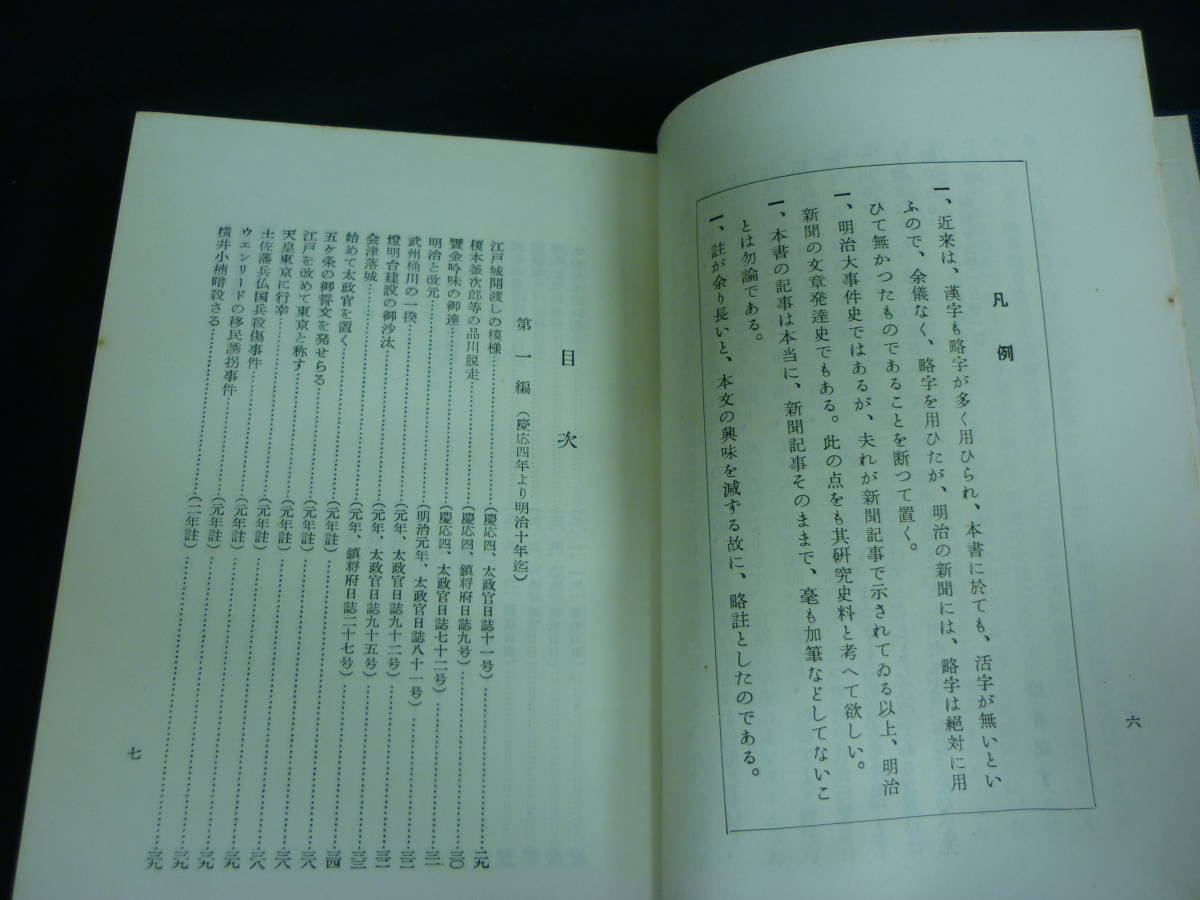 凡例
一、近来は、漢字も略字が多く用ひられ、本書に於ても、活字が無いとい
ふので、余儀なく、略字を用ひたが、明治の新聞には、略字は絶対に用
ひて無かつたものであることを断つて置く。
一、明治大事件史ではあるが、夫れが新聞記事で示されてゐる以上、明治
新聞の文章発達史でもある。此の点をも其研究史料と考へて欲しい。
一、本書の記事は本当に、新聞記事そのままで、毫も加筆などしてないこ
とは勿論である。
一、註が余り長いと、本文の興味を減する故に、略註としたのである。
六
目次
第一編（慶応四年より明治十年迄）
江戸城開渡しの模様……（慶応四、太政官日誌十一号）……二九
榎本釜次郎等の品川脱走……（慶応四、鎮将府日誌九号）……三〇
贋金吟味の御達……（慶応四、太政官日誌七十二号）……三一
明治と改元……（明治元年、太政官日誌八十一号）……三二
武州桶川の一揆……（元年、太政官日誌九十二号）……三二
燈明台建設の御沙汰……（元年、太政官日誌九十五号）……三三
会津落城……（元年、鎮将府日誌二十七号）……三四
始めて太政官を置く……（元年註）……三八
五ケ条の御誓文を発せらる……（元年註）……三八
江戸を改めて東京と称す……（元年註）……三八
天皇東京に行幸……（元年註）……三九
土佐藩兵仏国兵殺傷事件……（元年註）……三九
ウエンリードの移民誘拐事件……（元年註）……三九
横井小楠暗殺さる……（二年註）……三九
七